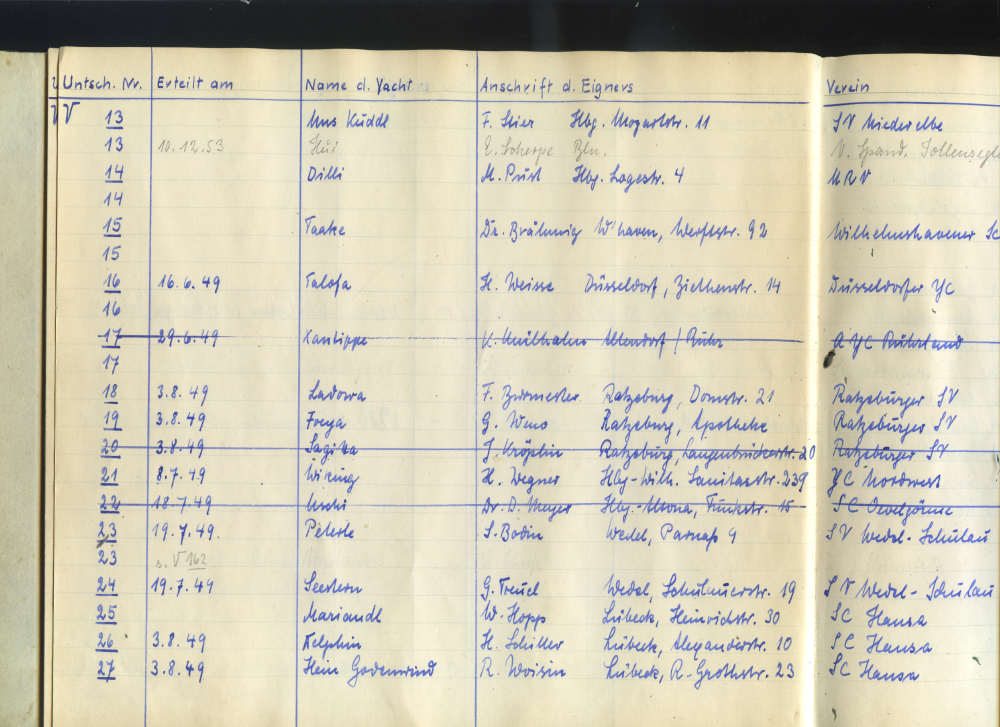 Untsch. Nr. Erteilt am Name d. Yacht Anschrift d. Eigners Verein
V 13 Uns Kuddl F. Stier Hbg. Mozartstr. 11 SV Niederelbe
13 10.12.53 E. Scherpe Bln. V. Spand. Jollensegl
14 Dilli M. Prüst Hbg. Lagestr. 4 MRV
14
15 Taake Dr. Bräunig W'haven, Werftstr. 92 Wilhelmshavener Sc
15
16 16.6.49 Talofa H. Weisse Düsseldorf, Ziethenstr. 14 Düsseldorfer YC
16
17 29.6.49 Xantippe K. Altendorf / Ruhr A YC Ruhrland
17
18 3.8.49 Ladowa F. Burmester Ratzeburg, Domstr. 21 Ratzeburger SV
19 3.8.49 Freya G. Ratzeburg, Apotheke Ratzeburger SV
20 3.8.49 Sagitta J. Kröplin Ratzeburg, Langenbrückerstr. 20 Ratzeburger SV
21 8.7.49 Wiking H. Wegner Hbg-Wilh. Sanitasstr. 239 YC Nordwest
22 18.7.49 Uschi Dr. D. Meyer Hbg.-Altona, Funkstr. 15 SC Oevelgönne
23 19.7.49. Peterle S. Bodin Wedel, Parnaß 4 SV Wedel-Schulau
23 s. V 162
24 19.7.49 Seestern G. Treuel Wedel, Schulauerstr. 19 SV Wedel-Schulau
25 Mariandl W. Hopp Lübeck, Heinrichstr. 30 SC Hansa
26 3.8.49 Delphin H. Schiller Lübeck, Alexanderstr. 10 SC Hansa
27 3.8.49 Hein Godenwind R. Woisin Lübeck, R-Grothstr. 23 SC Hansa